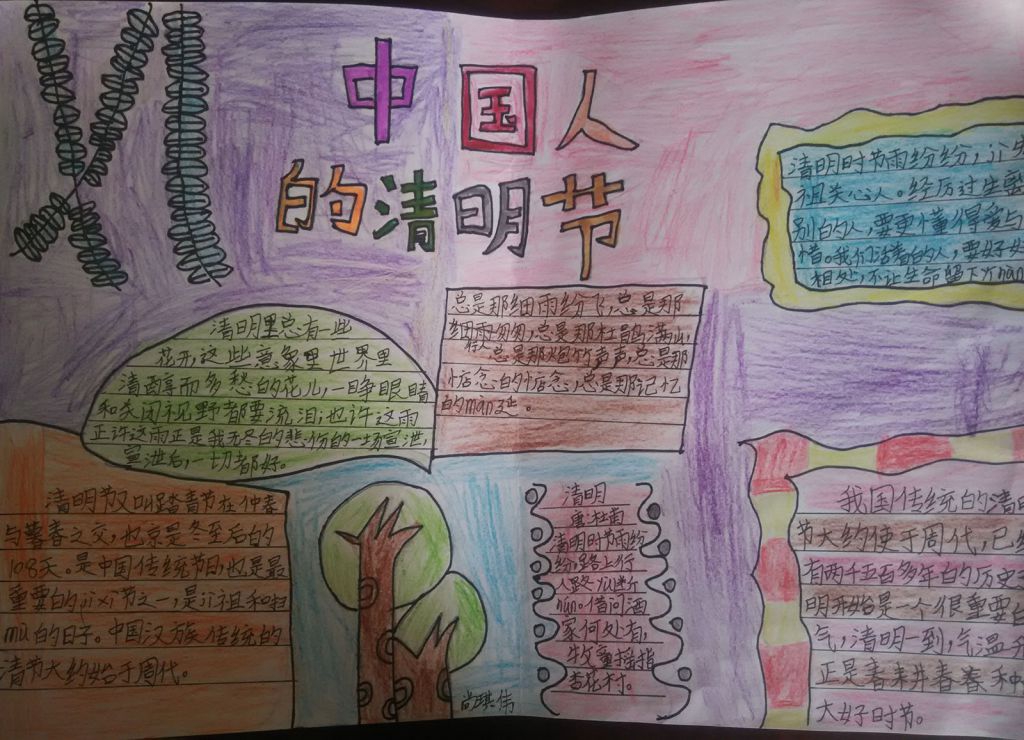 中国人
的清明节
清明时节雨纷纷，
祖类心人。经历过生
别的人，要更懂得爱与
惜。我们活着的人，要好好
相处，不让生命留下yi nan
清明里总有一些
花开，这些意象里世界里
清醇而多愁的花儿，一睁眼睛
和关闭不见野都要流泪；也许这雨
正许这雨正是我无冬的悲伤的一场宣泄，
宣泄后，一切都好。
总是那细雨纷飞，总是那
细雨匆匆，总是那杜鹃满山，
行人
总是那爆竹声声，总是那
惦念的惦念，总是那记忆
的màn延。
清明节又叫踏青节在仲春
与暮春之交，也京是冬至后的
108天。是中国传统节日，也是最
重要的jì xì节之一，是jì祖和扫
mù的日子。中国汉族传统的
清节大约始于周代。
清明
唐杜茵
清明时节雨纷
纷，路上行
人欲断
hún。借问酒
家何处有，
牧童摇指
杏花村。
尚琪伟
我国传统的清明
节大约使于周代，已经
有两千五百多年的历史
明开始是一个很重要
气，清明一到，气温升
正是春耕春种
大好时节。